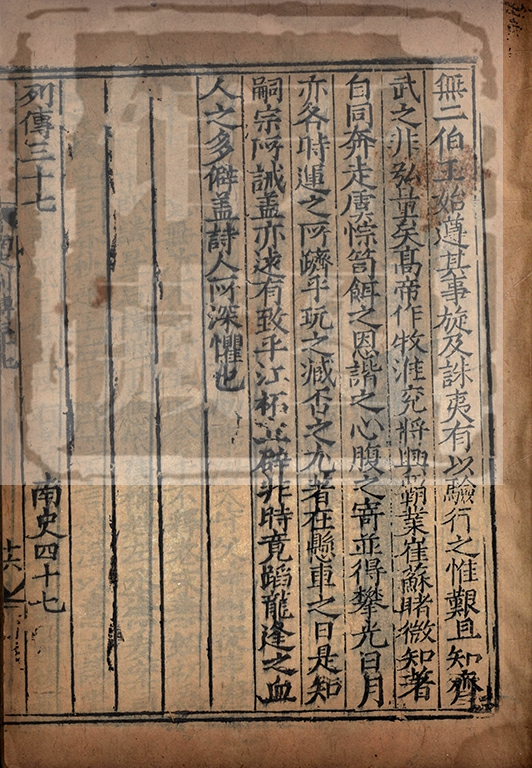 無二伯玉始遵其事旋及誅夷有以驗行之惟艱且知齊
武之非弘量矣高帝作牧淮兖將興霸業崔蘇睹微知著
自同奔走虞悰笥餌之恩諧之心腹之寄並得攀光日月
亦各時運之所躋乎玩之臧否之尤著在懸車之日是知
嗣宗所誡盖亦遠有致乎江祏立辟非時竟蹈龍逢之血
人之多僻盖詩人所深懼也
列傳三十七
南史四十七
十六